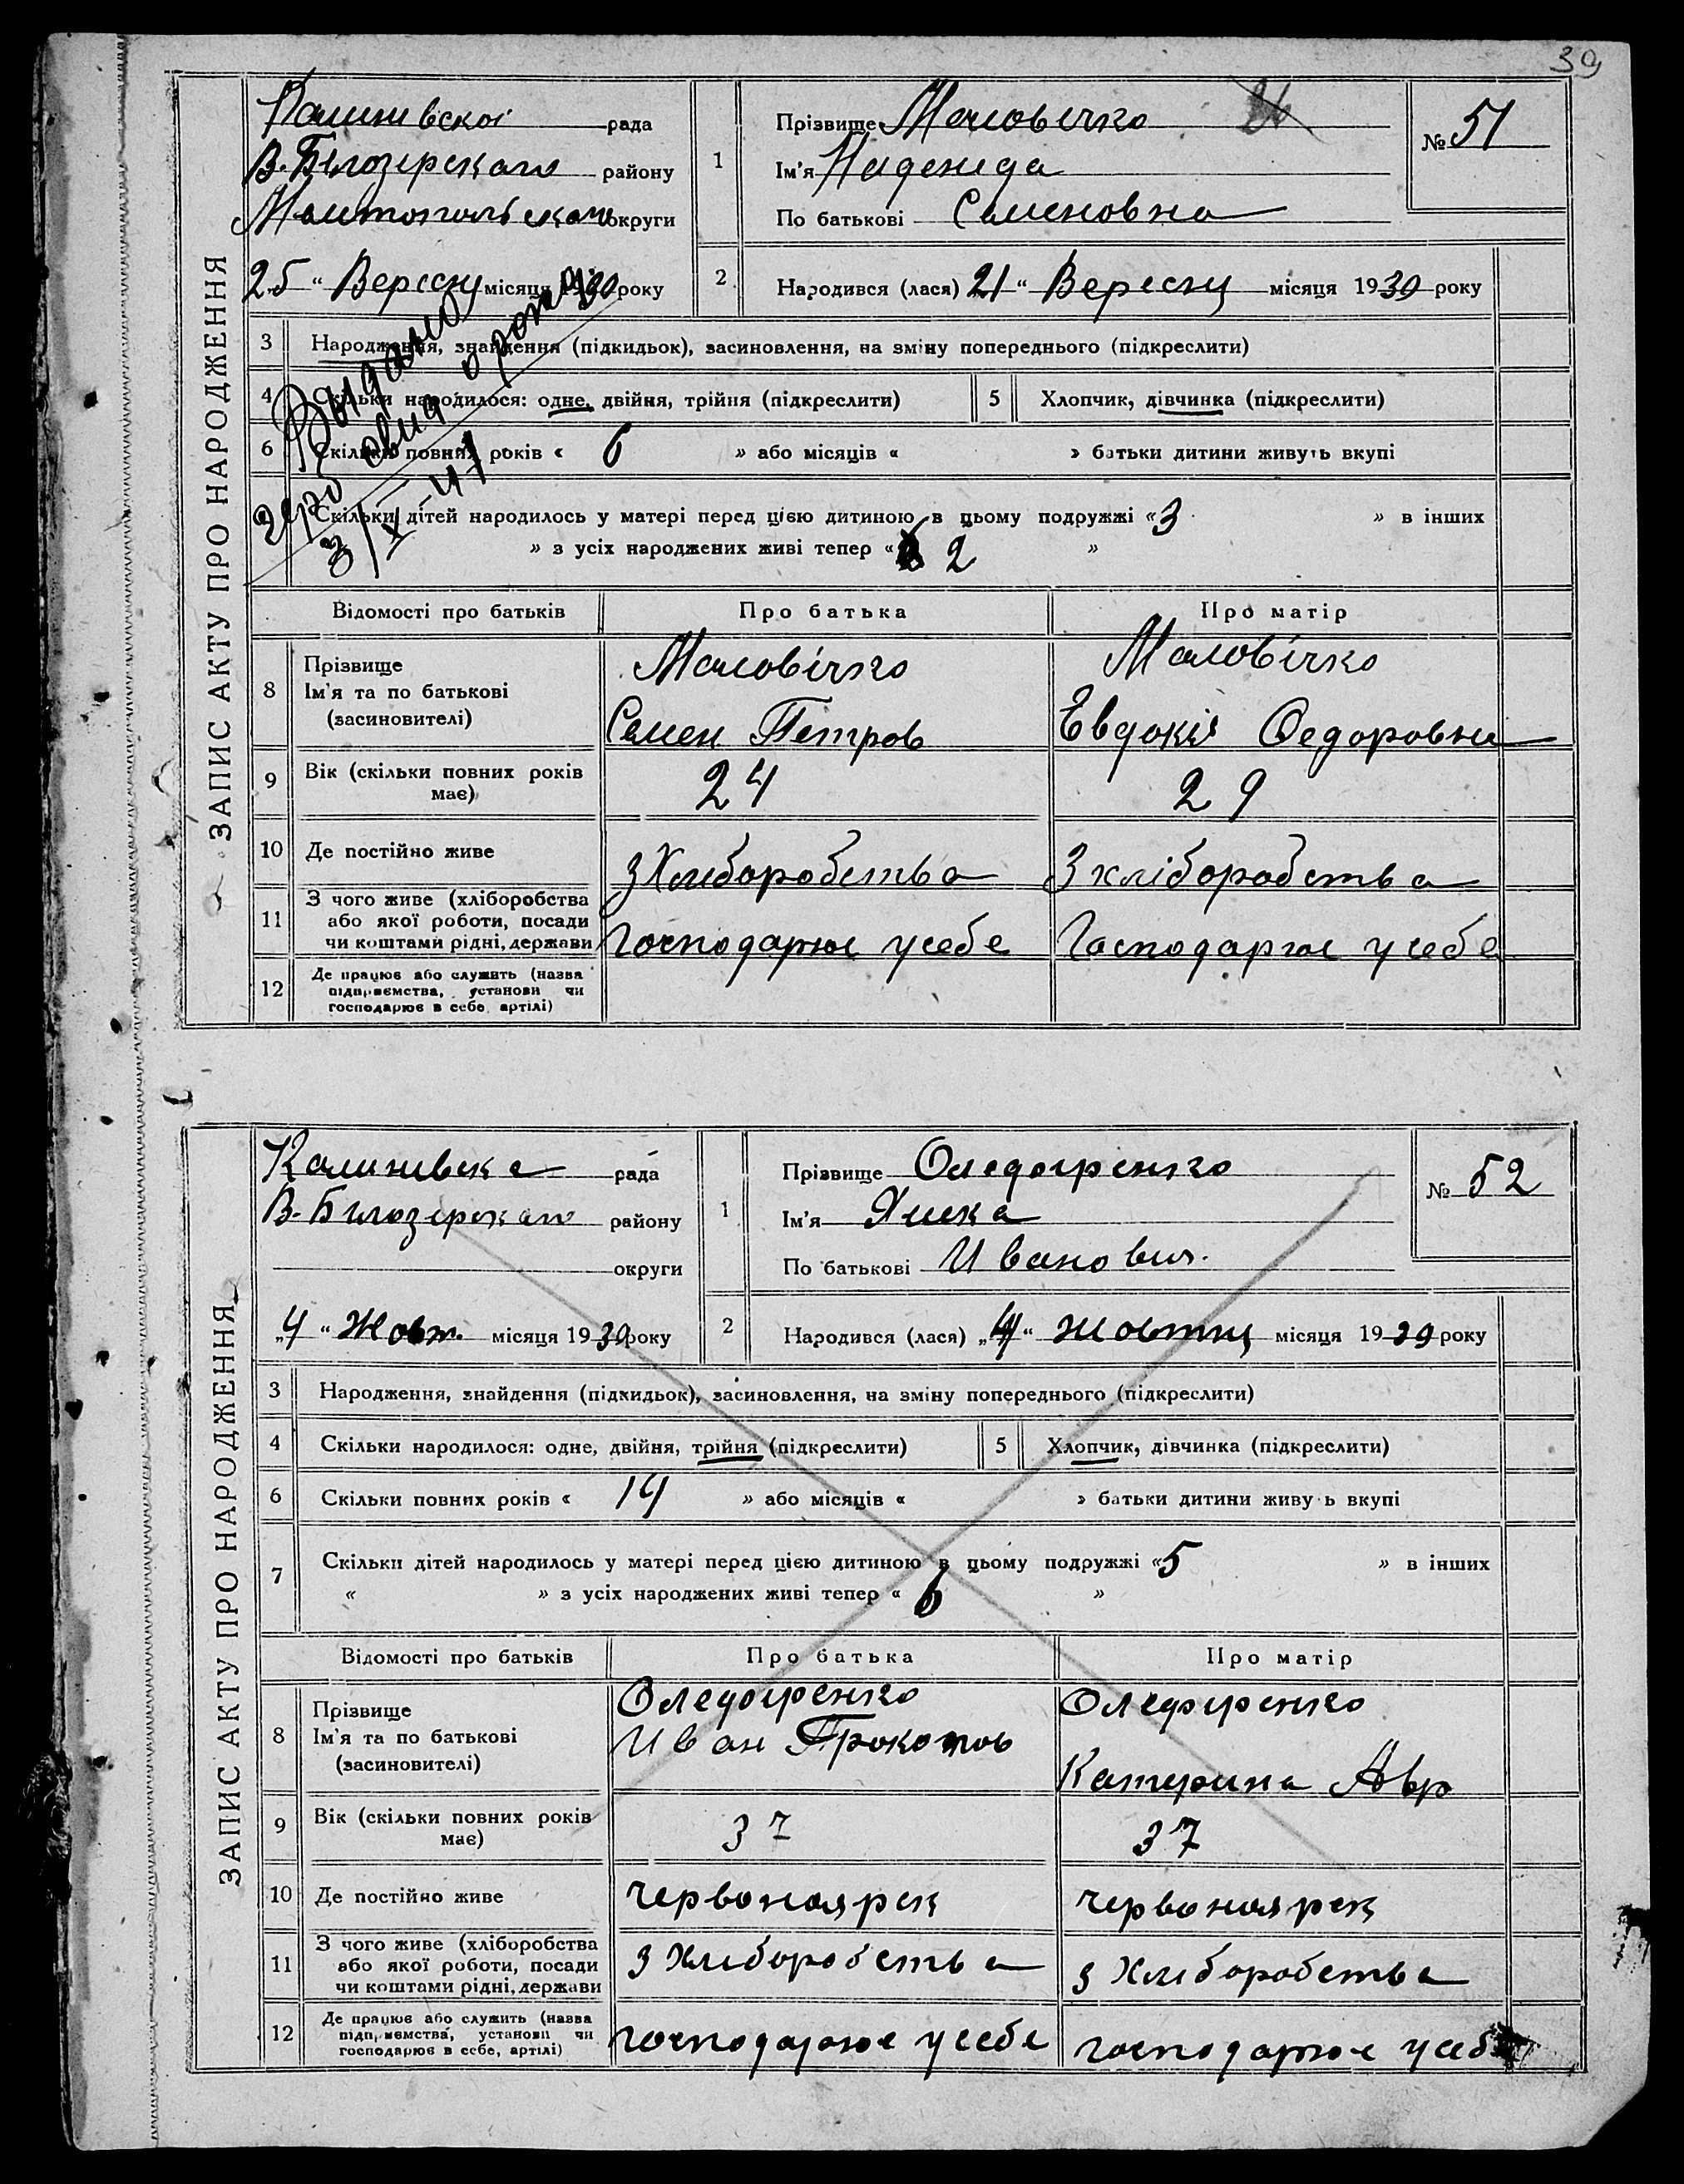 39
ЗАПИС АКТУ ПРО НАРОДЖЕННЯ
рада
В. Білозерского району
округи
25 " Вересня місяця 1930 року
1
Прізвище Маловічко
Ім'я Надежда
По батькові Семеновна
№ 51
2
Народився (лася) 21 " Вересня місяця 1930 року
3 Народження, знайдення (підкидьок), засиновлення, на зміну попереднього (підкреслити)
4 Скільки народилося: одне, двійня, трійня (підкреслити)
5 Хлопчик, дівчинка (підкреслити)
6 Скільки повних років « 6 » або місяців « » батьки дитини живуть вкупі
Скільки дітей народилось у матері перед цією дитиною в цьому подружжі « 3 » в інших
» з усіх народжених живі тепер « 2 »
3/X-41
Відомості про батьків Про батька Про матір
8 Прізвище
Ім'я та по батькові
(засиновителі)
Маловічко
Семен Петров
Маловічко
Евдокія Федоровна
9 Вік (скільки повних років має) 24 29
10 Де постійно живе З Хліборобства З хліборобства
11 З чого живе (хліборобства
або якої роботи, посади
чи коштами рідні, держави
Господарює у себе Господарює у себе
12 Де працює або служить (назва
підприємства, установи чи
господарює в себе, артілі)
ЗАПИС АКТУ ПРО НАРОДЖЕННЯ
Калинивска рада
В. Билозерского району
округи
„4 " Жовт. місяця 1930 року
1
Прізвище Олефиренко
Ім'я
По батькові Иванович.
№ 52
2
Народився (лася) „4 " жовтня місяця 1930 року
3 Народження, знайдення (підкидьок), засиновлення, на зміну попереднього (підкреслити)
4 Скільки народилося: одне, двійня, трійня (підкреслити)
5 Хлопчик, дівчинка (підкреслити)
6 Скільки повних років « 14 » або місяців « » батьки дитини живуть вкупі
7 Скільки дітей народилось у матері перед цією дитиною в цьому подружжі « 5 » в інших
« » з усіх народжених живі тепер « 6 »
Відомості про батьків Про батька Про матір
8 Прізвище
Ім'я та по батькові
(засиновителі)
Олефиренко
Иван Прокопов
Олефиренко
Катерина Авр
9 Вік (скільки повних років має) 37 37
10 Де постійно живе Червоноярск Червоноярск
11 З чого живе (хліборобства
або якої роботи, посади
чи коштами рідні, держави
З Хлиборобства З Хлиборобства
12 Де працює або служить (назва
підприємства, установи чи
господарює в себе, артілі)
Господарює у себе господарює у себе